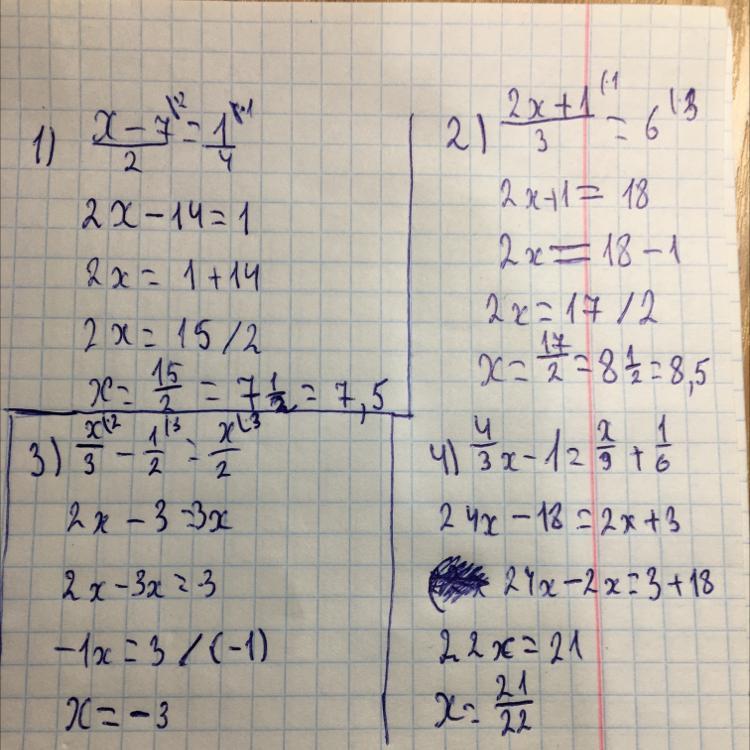 1) (x-7)/2 \·2 = 1/4 \·1
2x-14=1
2x= 1+14
2x= 15 /2
x= 15/2 = 7 1/2 = 7,5
2) (2x+1)/3 \·1 = 6 \·3
2x+1= 18
2x= 18-1
2x=17 /2
x= 17/2 =8 1/2=8,5
3) x/3 \·2 - 1/2 \·3 = x/2 \·3
2x-3=3x
2x-3x=3
-1x=3 /(-1)
x=-3
4) 4/3 x-1= x/9 + 1/6
24x-18=2x+3
24x-2x=3+18
22x=21
x= 21/22